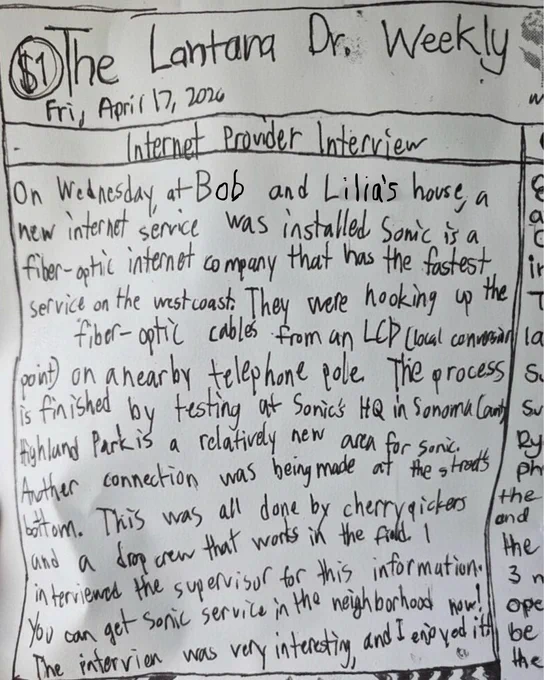 $1 The Lantana Dr. Weekly
Fri, April 17, 2026
Internet Provider Interview
On Wednesday, at Bob and Lilia's house, a
new internet service was installed Sonic is a
fiber-optic internet company that has the fastest
service on the west coast. They were hooking up the
fiber-optic cables from an LCP (local conversion
point) on a nearby telephone pole. The process
is finished by testing at Sonic's HQ in Sonoma County
Highland Park is a relatively new area for sonic.
Another connection was being made at the street's
bottom. This was all done by cherrypickers
and a drop crew that works in the field. I
interviewed the supervisor for this information.
You can get Sonic service in the neighborhood now!
The intervien was very interesting, and I enjoyed it!
w
a
in
T
la
Su
Ry
ph
the
and
the
3 n
ope
be
the